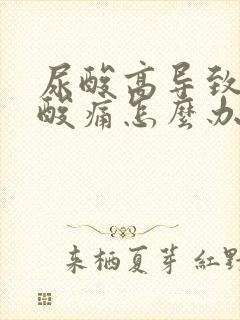 尿酸高导致
酸痛怎麼办
来栖夏芽 紅野